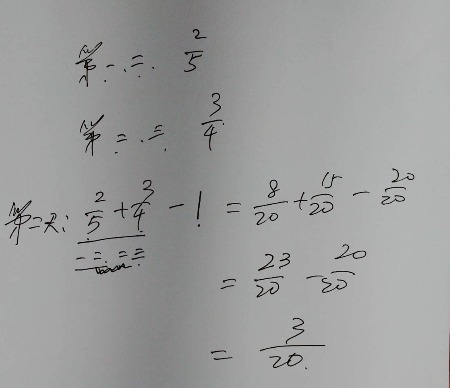 第一.二. 2/5
第二.三 3/4
第二天: 2/5 + 3/4 - 1 = 8/20 + 15/20 - 20/20
一二.二三
= 23/20 - 20/20
= 3/20.